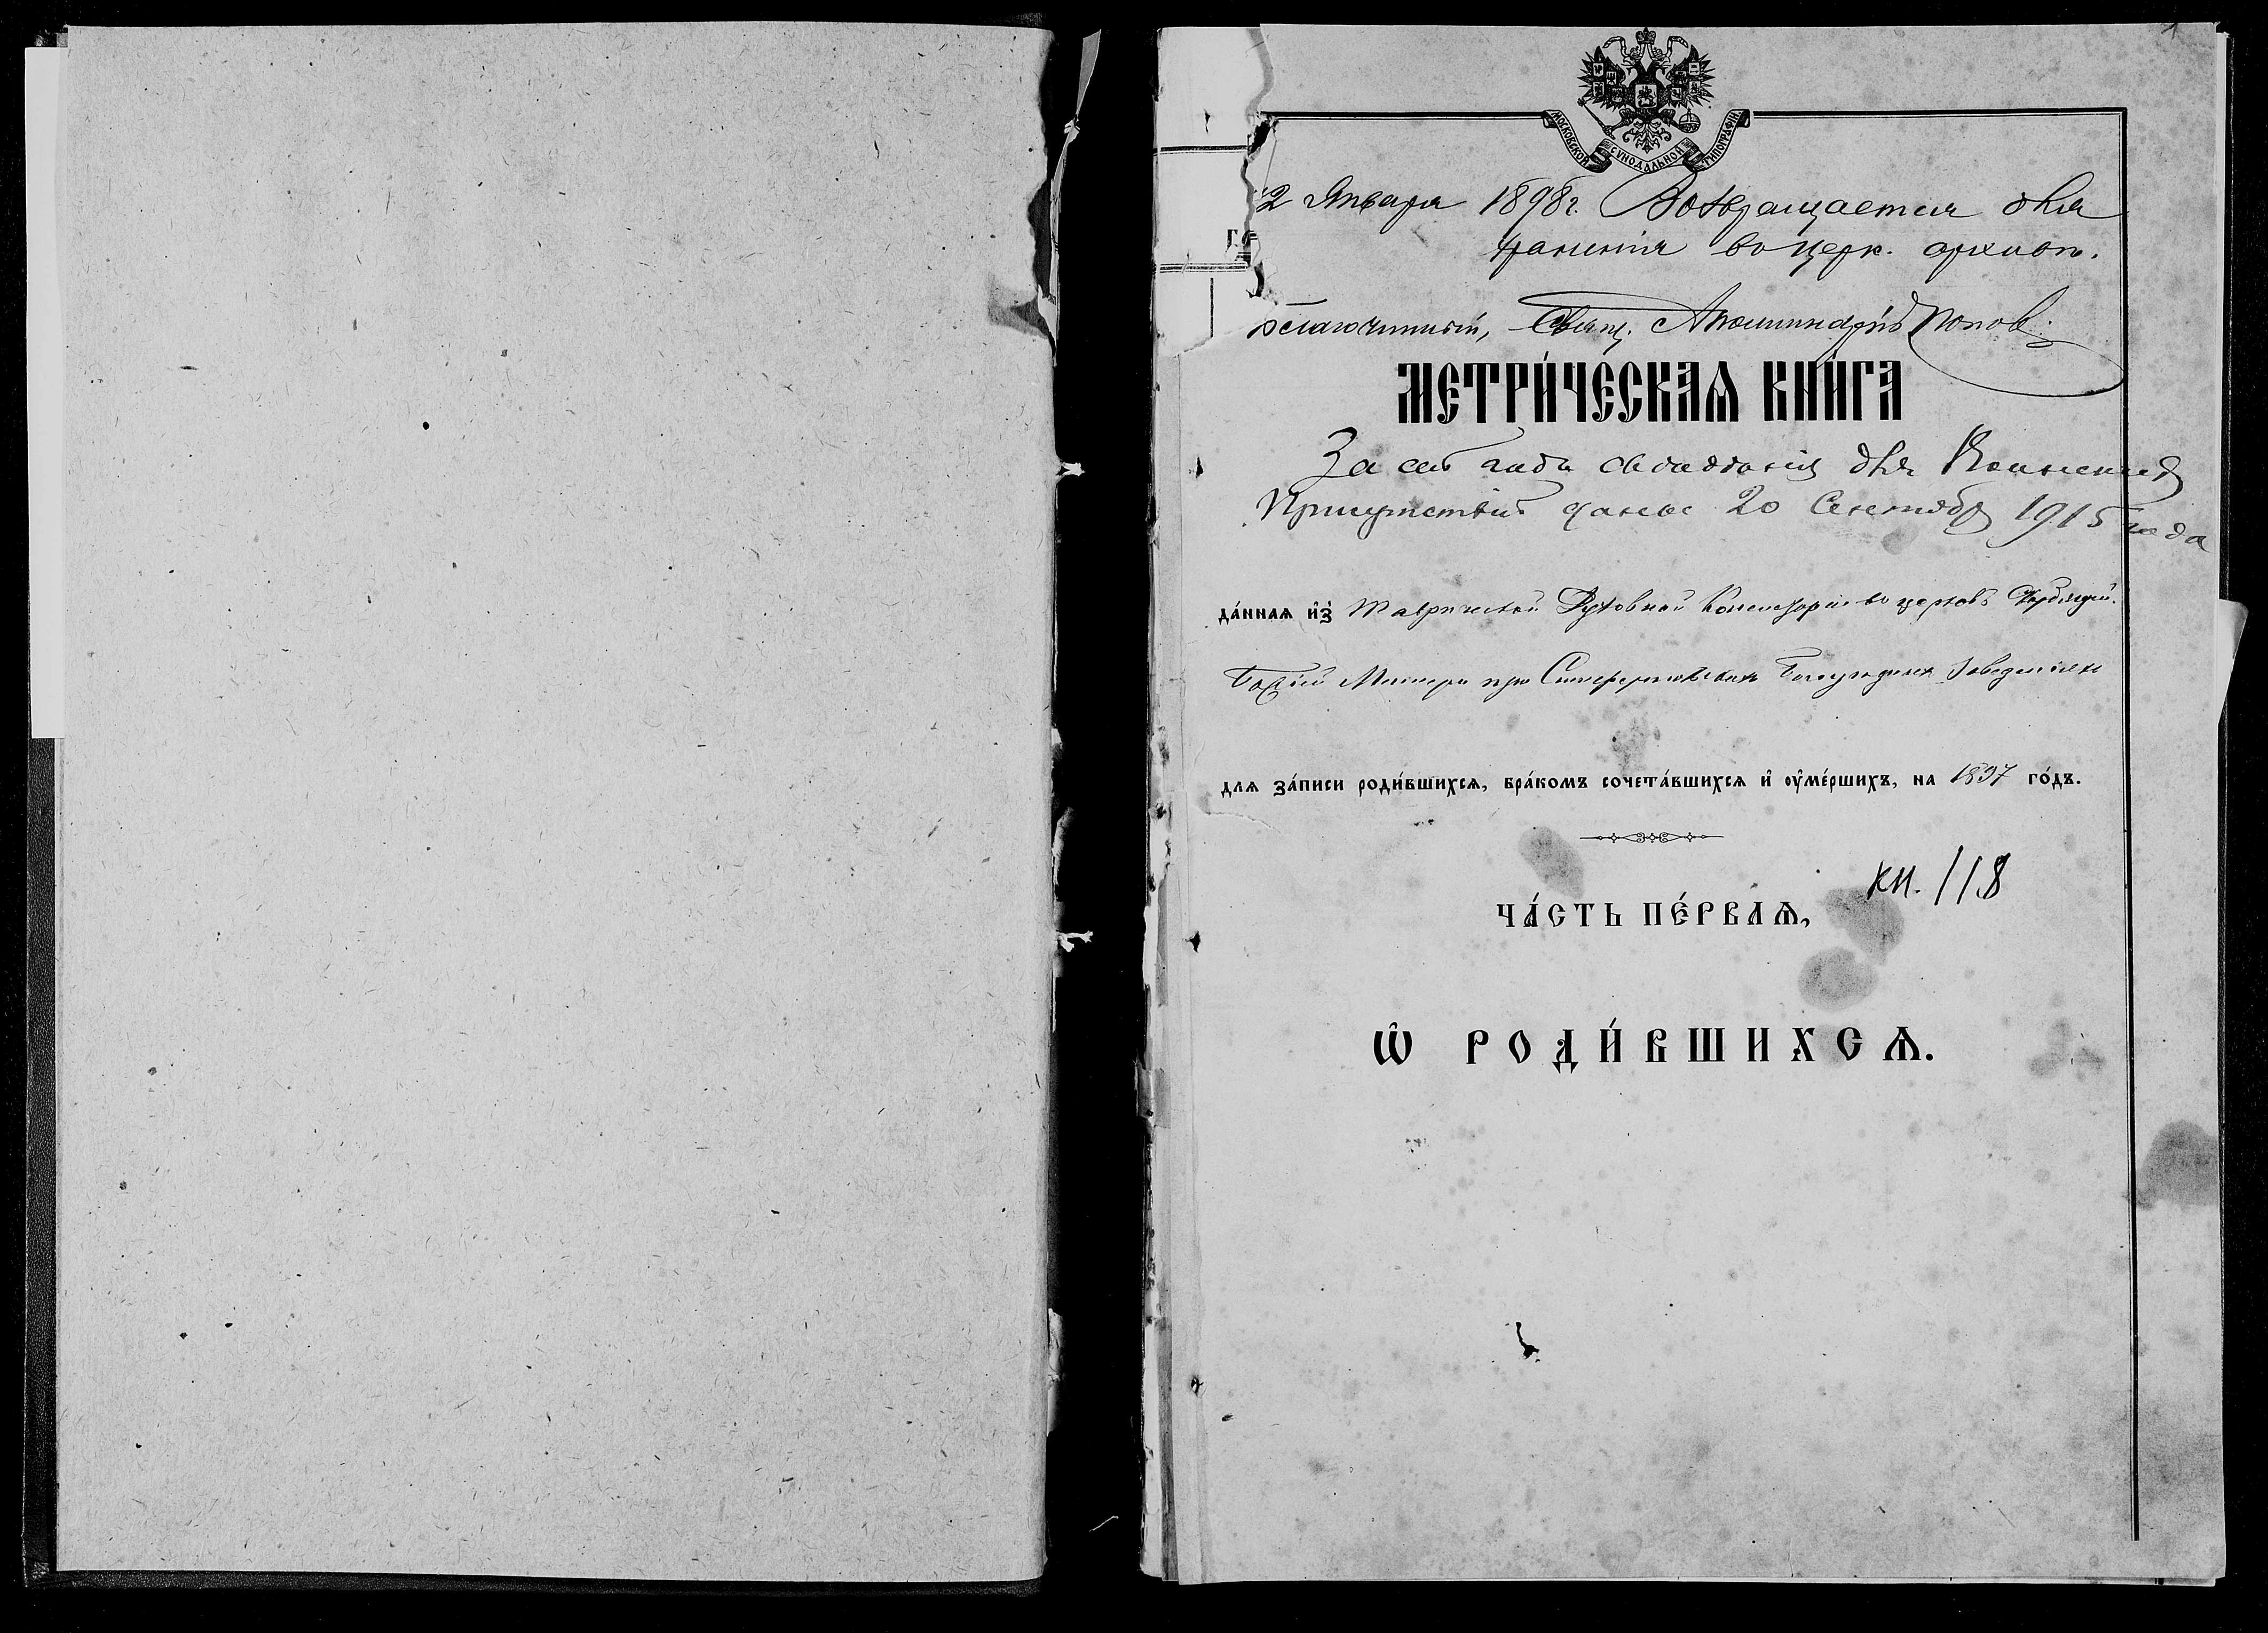 1
МОСКОВСКОЙ СѴНОДАЛЬНОЙ ТИПОГРАФІИ
2 Января 1898 г. Возвращается для
храненія въ церк. архивъ.
Благочинный, Свящ. Аполлинарій Попов
МЕТРИ́ЧЕСКАѦ КНИ́ГА
За сей годъ свѣдѣнія для Воинскаго
Присутствія даны 20 Сентября 1915 года
да́ннаѧ и҆з̾ Таврической Духовной Консисторіи во церковь Скорбящей
Божіей Матери при Симферопольскихъ Богоугодныхъ Заведеніяхъ
длѧ за́писи роди́вшихсѧ, бра́комъ сочета́вшихсѧ и҆ ѹ҆ме́ршихъ, на 1897 го́дъ.
кн. 118
ЧА́СТЬ ПЕ́РВАѦ,
Ѡ҆ РОДИ́ВШИХСѦ.